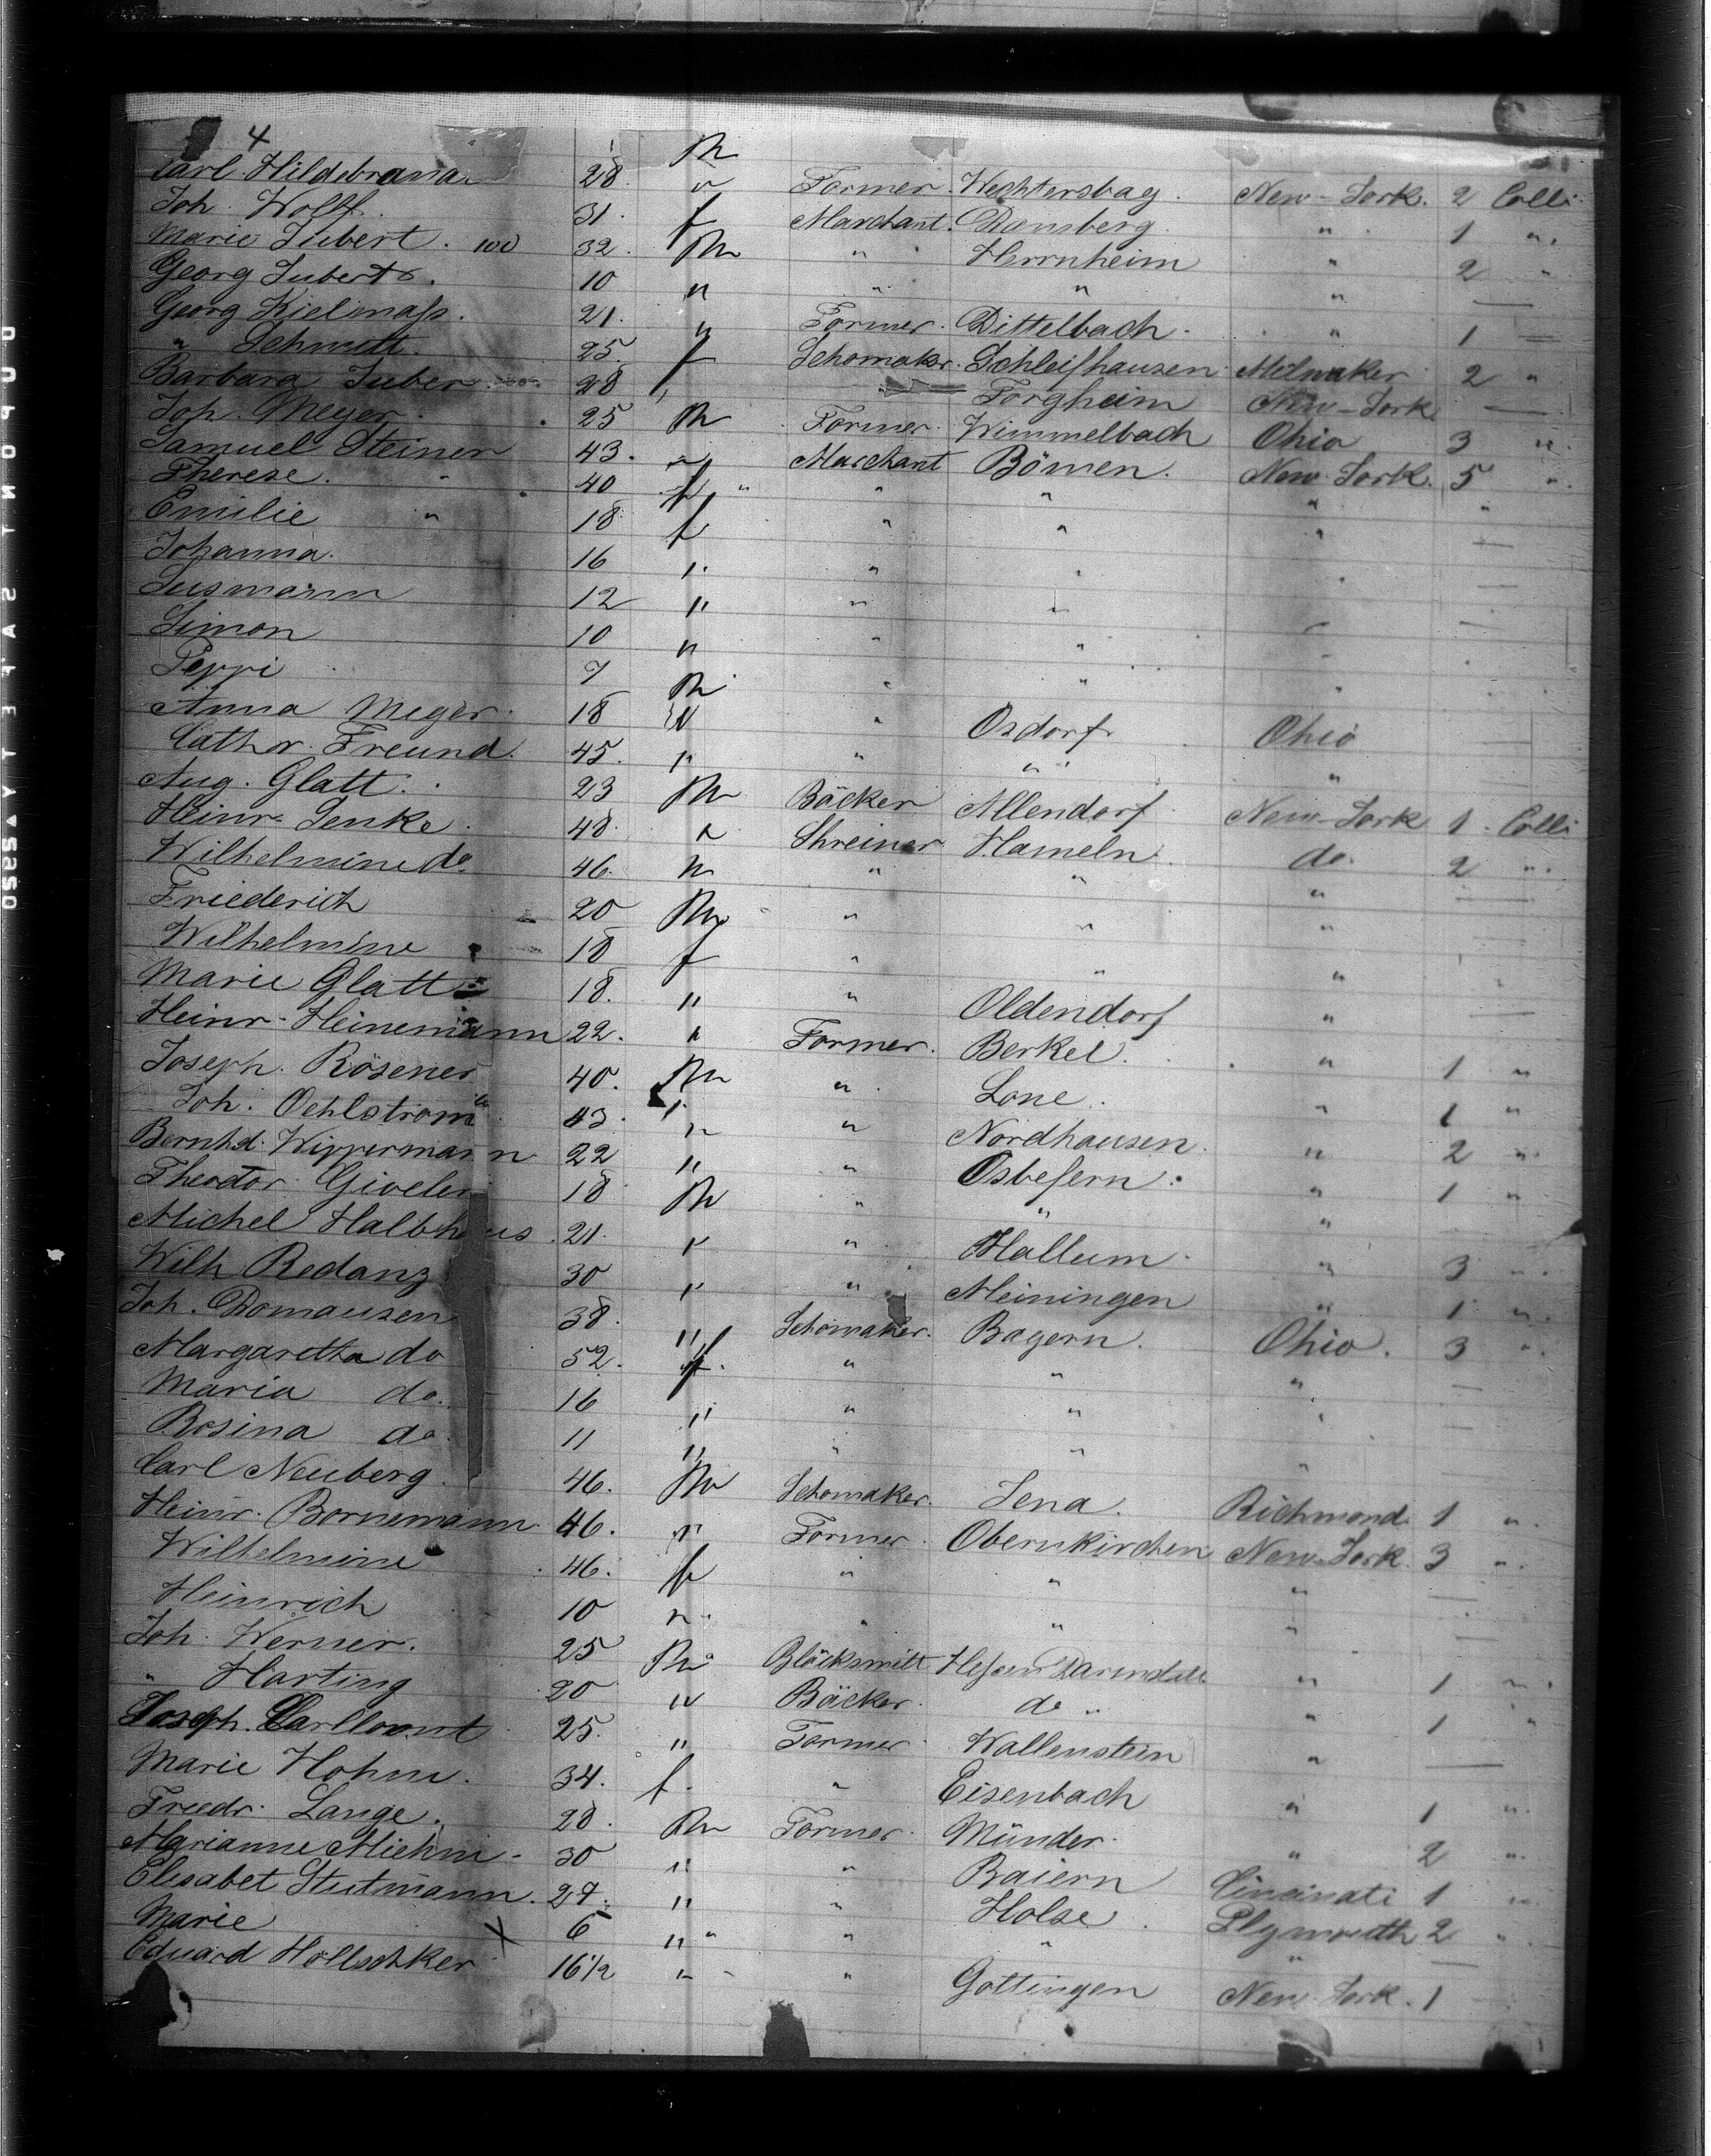 4
Carl Hildebrand 28 m Farmer Wechtersbag New-York 2 Colli
Joh. Wolff 31 " Marchant Ramsberg " 1 "
Marie Jubert 32 f " Herrnheim " 2 "
Georg Jubert 10 m " " " —
Georg Kielmass 21 " Farmer Dittelbach " 1 —
" Schmitt 25 " Schomaker Schleifhausen Milwaker 2 "
Barbara Juber 28 f Forgheim New-York —
Joh. Meyer 25 m Farmer Wimmelbach Ohio 3 "
Samuel Steiner 43 " Marchant Bömen New York 5 "
Therese " 40 f " " " "
Emilie " 18 f " " " —
Johanna 16 " " " " —
Susmann 12 " " " —
Simon 10 " " " —
Peppi 7 m " " "
Anna Meyer 18 " Osdorf Ohio
Cathr. Freund 45 " " " "
Aug. Glatt 23 m Bäcker Allendorf New-York 1 Colli
Heinr. Lenke 48 " Shreiner Hameln do 2 "
Wilhelmine do 46 " " " " —
Friederich 20 m " " " —
Wilhelmine 18 f " " "
Marie Glatt 18 " " Oldendorf " —
Heinr. Heinemann 22 " Farmer Berkel " 1 "
Joseph Rösener 40 m " Lone " 1 "
Joh. Oehlstrom 43 " " Nordhausen " 2 "
Bernhd. Wippermann 22 " " Osbefern " 1 "
Theodor Gioeler 18 m " " "
Michel Halbhaus 21 " " Hallum " 3 "
Wilh Redanz 30 " " Meiningen " 1 "
Joh. Domausen 38 " Schomaker Bagern Ohio 3 "
Margaretha do 52 f " " " —
Maria do 16 " " " " —
Rosina do 11 " " " "
Carl Neuberg 46 m Schomaker Jena Richmond 1 "
Heinr. Bornemann 46 " Farmer Obernkirchen New-York 3 "
Wilhelmine 46 f " " " —
Heinrich 10 " " " " —
Joh. Werner 25 m Bläcksmitt Hessen Darmstatt " 1 "
" Harting 20 " Bäcker do " " 1 "
Joseph 25 " Farmer Wallenstein " —
Marie Hohm 34 f " Eisenbach " 1 "
Friedr. Lange 28 m Farmer Münder " 2 "
Marianne 30 " " Baiern Cincinati 1 "
Elisabet Stutmann 27 " " Holse Plymouth 2 "
Marie X 6 " " " " —
Eduard Hollschker 16 1/2 " " Gottingen New York 1 —